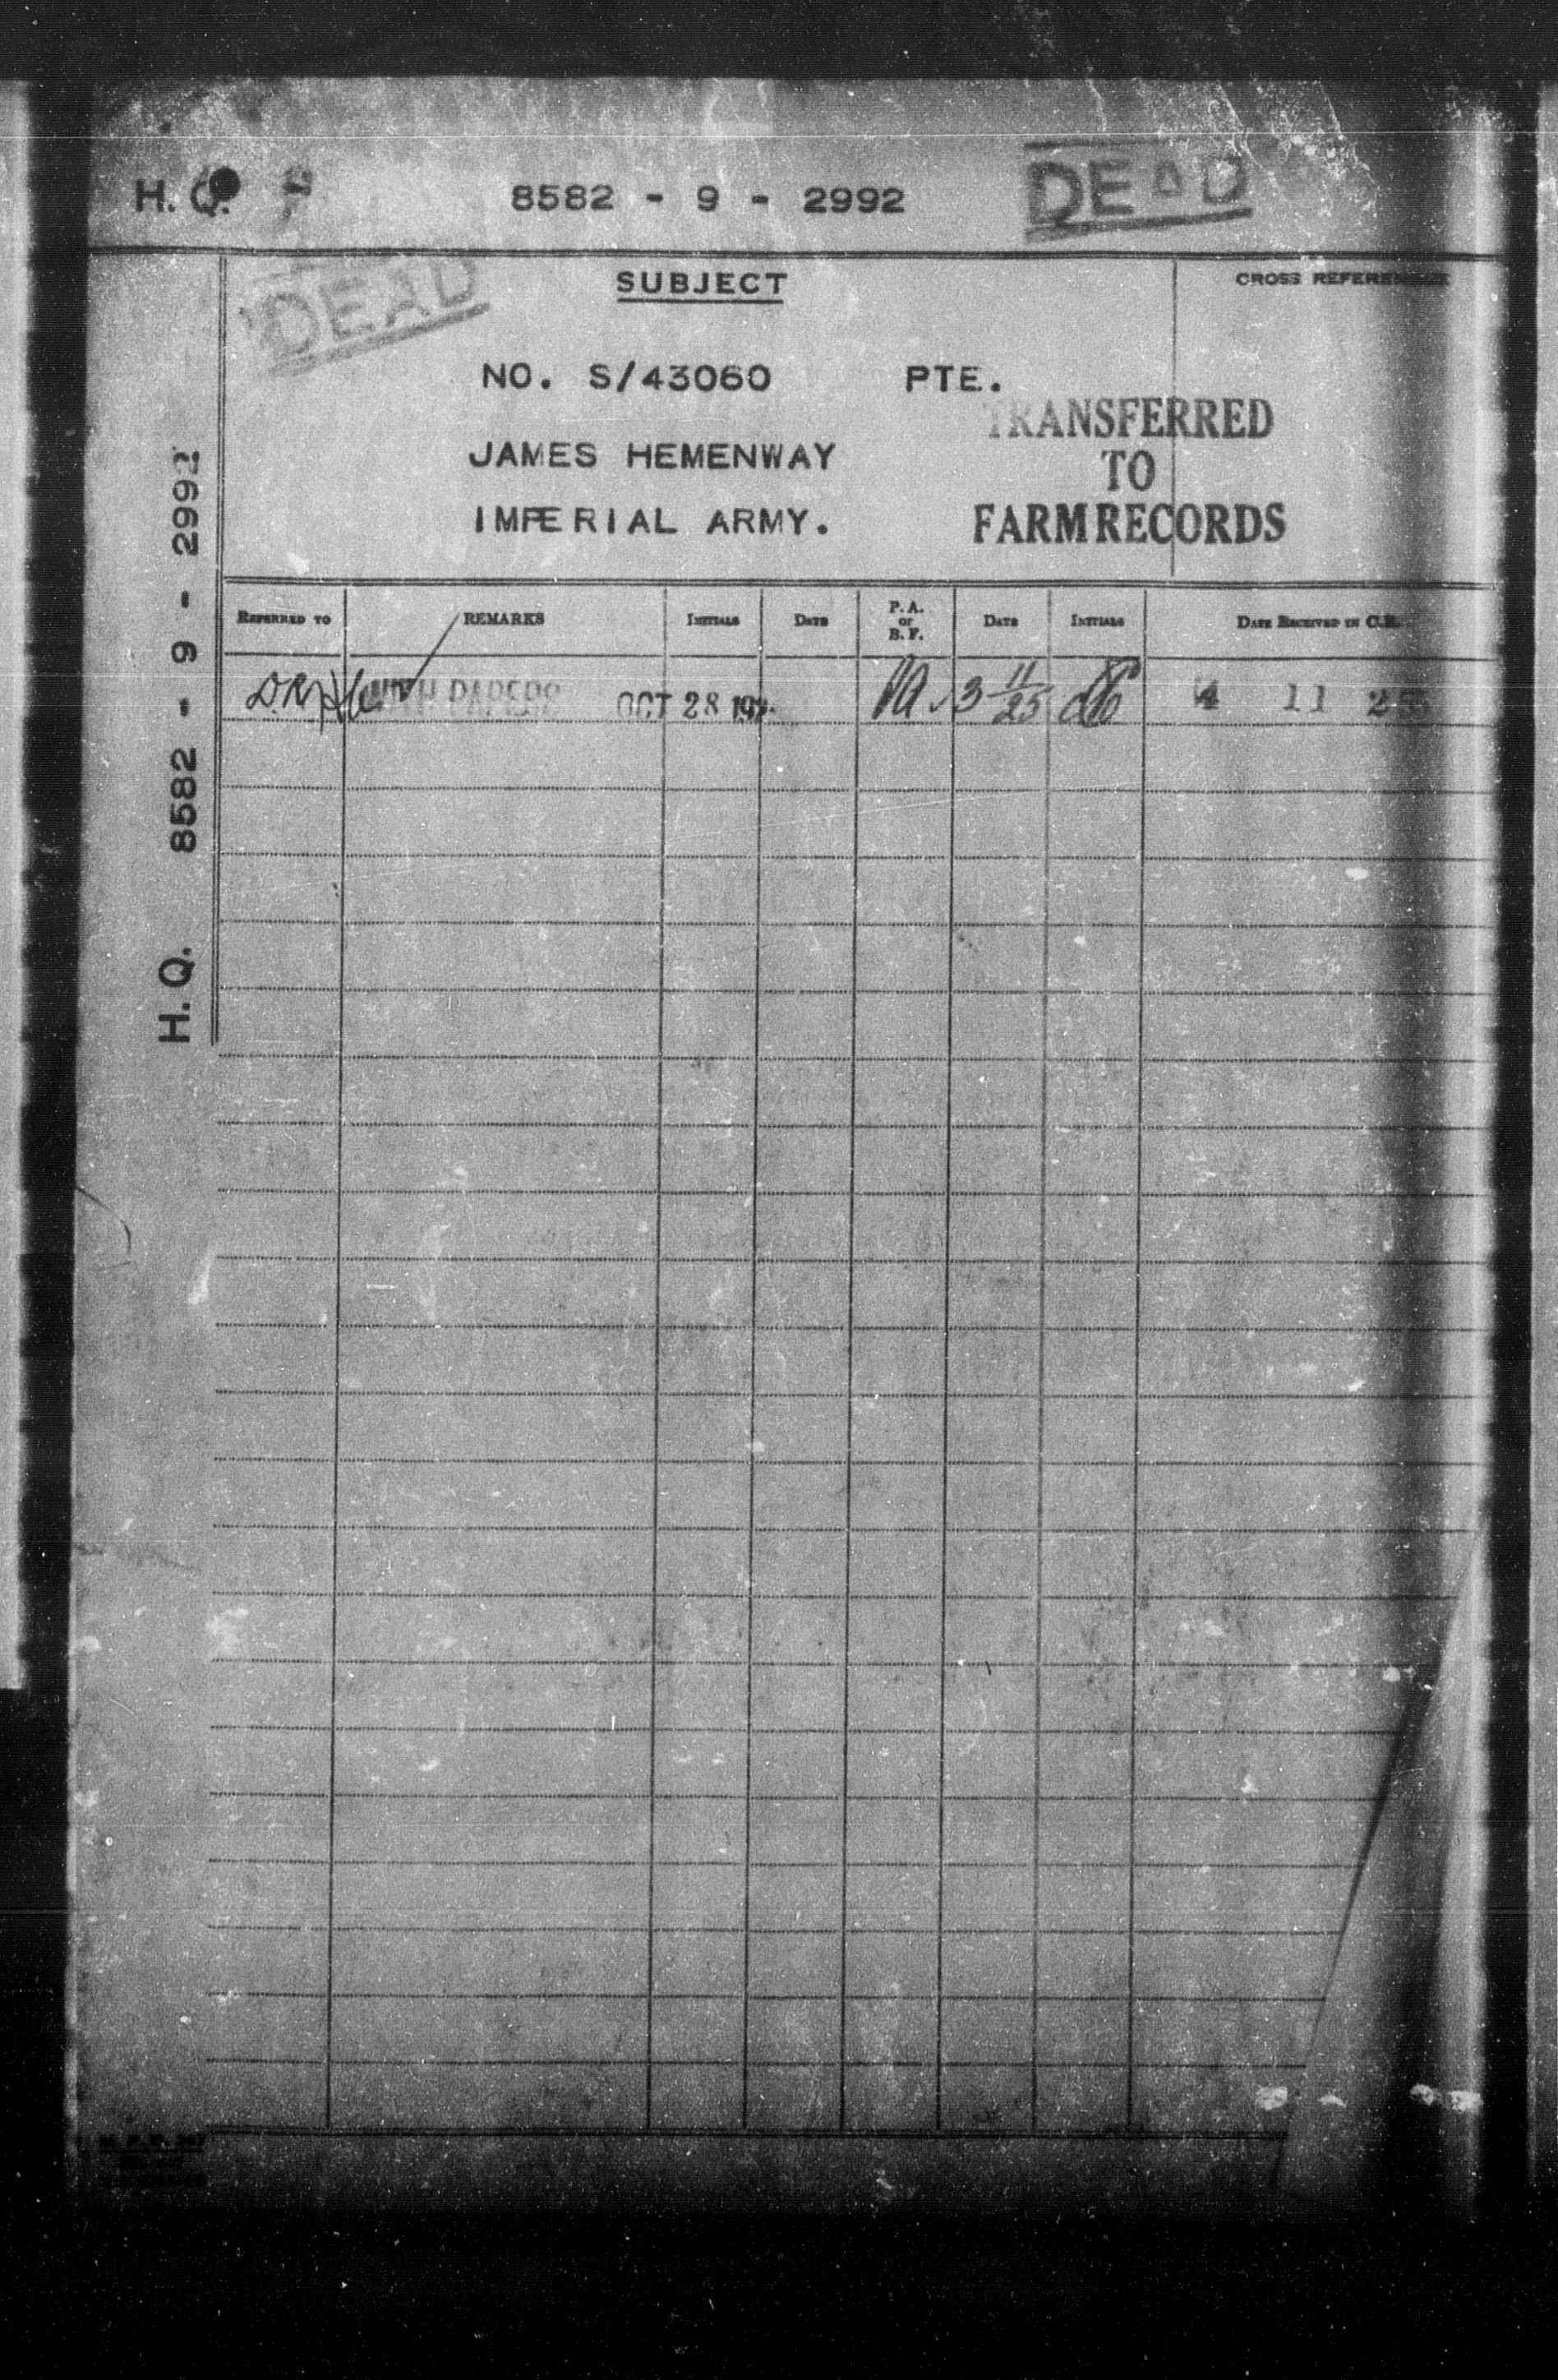 H. Q. 8582 - 9 - 2992 DEAD
DEAD
SUBJECT
CROSS REFERENCE
NO. S/43060 PTE.
JAMES HEMENWAY
IMPERIAL ARMY.
TRANSFERRED
TO
FARM RECORDS
H. Q. 8582 - 9 - 2992
REFERRED TO REMARKS INITIALS DATE P. A. or B. F. DATE INITIALS DATE RECEIVED IN C.R.
WITH PAPERS OCT 28 192 3 11/25 4 11 25